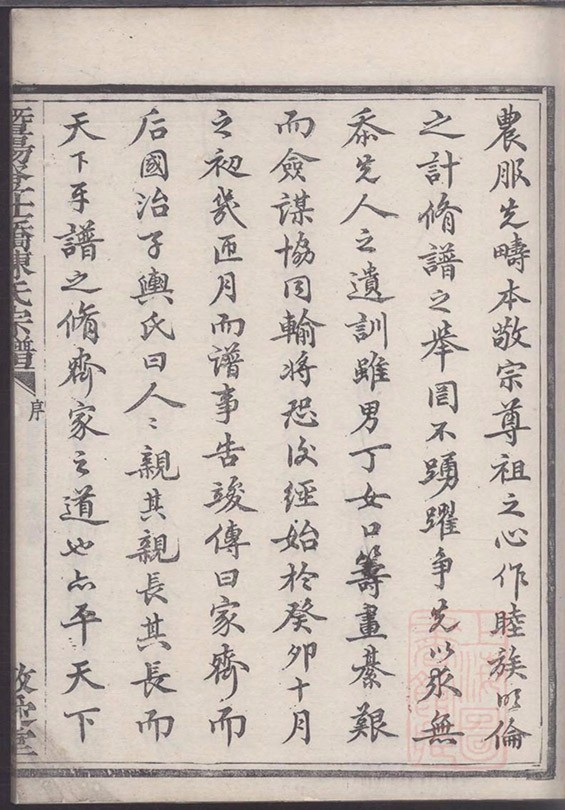 農服先疇本敬宗尊祖之心作睦族明倫
之計脩譜之举罔不踴躍争先以求無
忝先人之遺訓雖男丁女口籌畫綦艱
而僉謀協同輸將恐後經始於癸卯十月
之初幾匝月而譜事告竣傳曰家齊而
后國治子輿氏曰人〻親其親長其長而
天下平譜之脩齊家之道也亦平天下
暨陽 橋陳氏宗譜
序